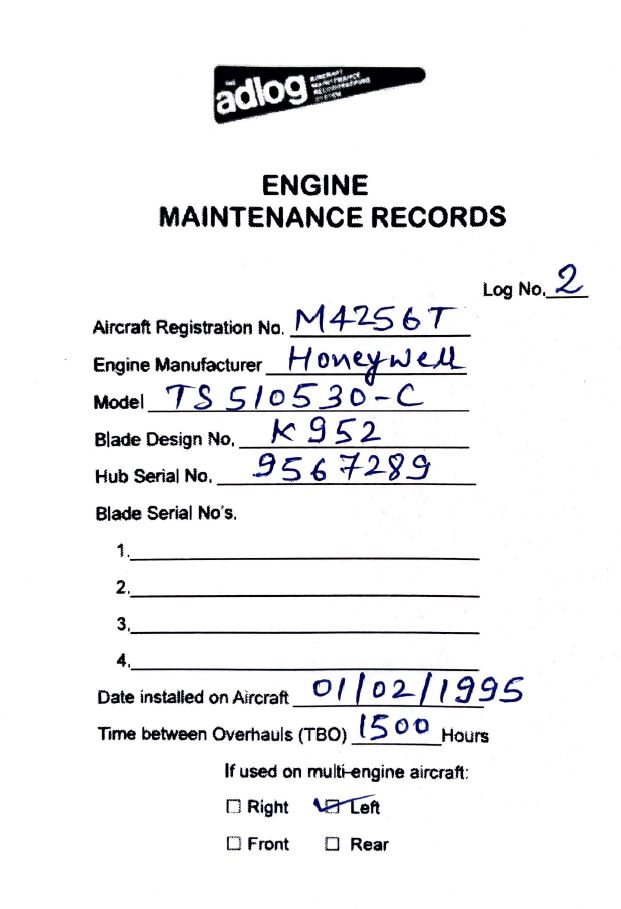 THE
adlog
AIRCRAFT
MAINTENANCE
RECORDKEEPING
SYSTEM
ENGINE
MAINTENANCE RECORDS
Log No. 2
Aircraft Registration No. M4256T
Engine Manufacturer Honeywell
Model TS510530-C
Blade Design No. K952
Hub Serial No. 9567289
Blade Serial No's.
1.
2.
3.
4.
Date installed on Aircraft 01/02/1995
Time between Overhauls (TBO) 1500 Hours
If used on multi-engine aircraft:
☐ Right ☑ Left
☐ Front ☐ Rear